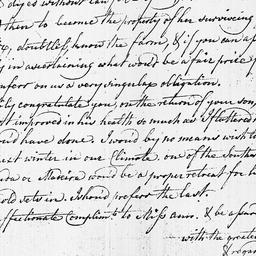 then to become the property of her surviving
doubtless, know the farm, & if you can a
in ascertaining what would be a fair price f
confer on us a very singular obligation.
congratulate you, on the return of your son,
improved in his health so much as I flattered
have done. I would by no means wish to
next winter in one Climate. one of the Southern
or Madeira would be a proper retreat for h
cold sets in. I should prefer the last.
affectionate Complimts. to Miss Ann. & be assur
with the greatest
& regard